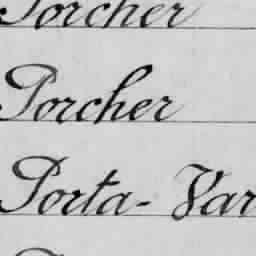 Porcher
Porcher
Porta- Var